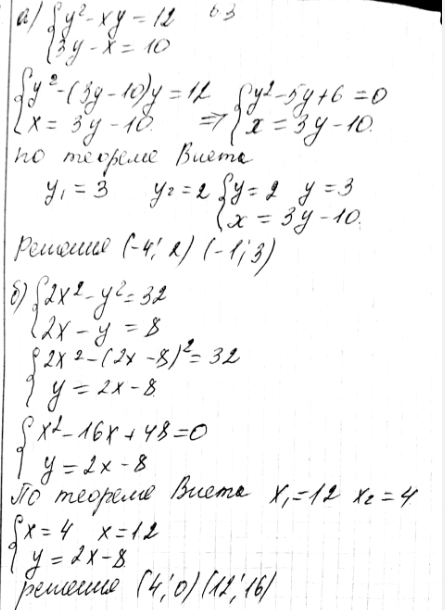 а) {y² - xy = 12 63
{3y - x = 10
{y² - (3y - 10)y = 12 ⇒ {y² - 5y + 6 = 0
{x = 3y - 10. {x = 3y - 10.
по теореме Виета
y₁ = 3 y₂ = 2 {y = 2 y = 3
{x = 3y - 10.
Решение (-4; 2) (-1; 3)
б) {2x² - y² = 32
{2x - y = 8
{2x² - (2x - 8)² = 32
{y = 2x - 8
{x² - 16x + 48 = 0
{y = 2x - 8
По теореме Виета x₁ = 12 x₂ = 4
{x = 4 x = 12
{y = 2x - 8
решение (4; 0) (12; 16)